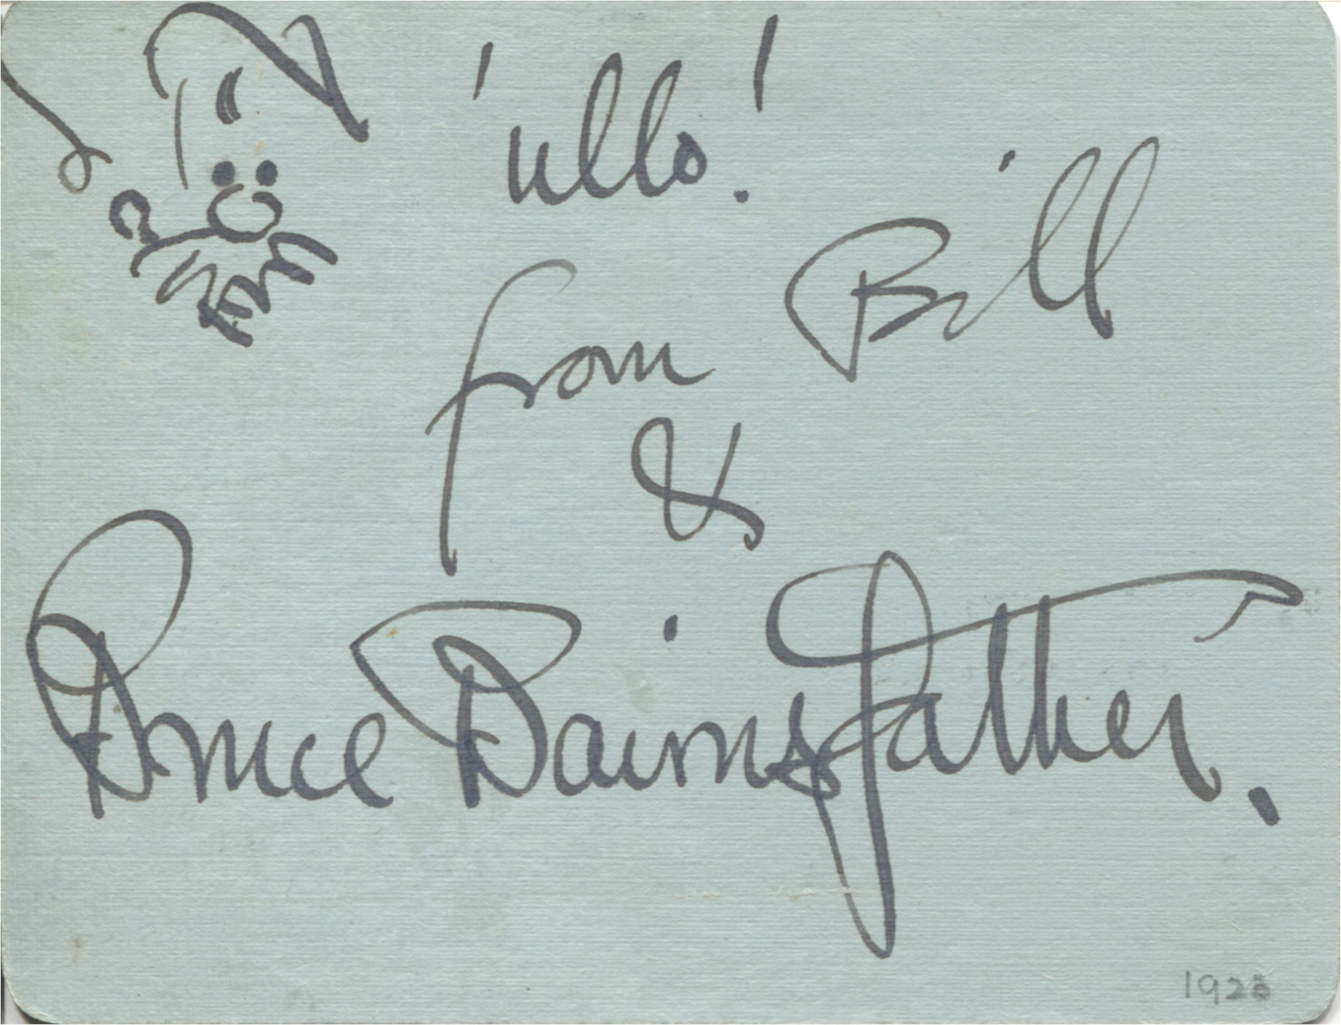 'ullo!
from Bill
&
Bruce Bairnsfather.